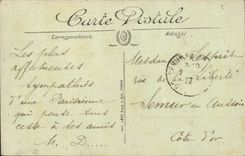 Carte Postale
Correspondance
Adresse
Les plus
affectueuses
sympathies
d'une Parisienne
qui pense sans
cesse à ses amis
M. D.
Mesdames Lesprit
rue de la Liberté
Semur en Auxois
Côte d'or